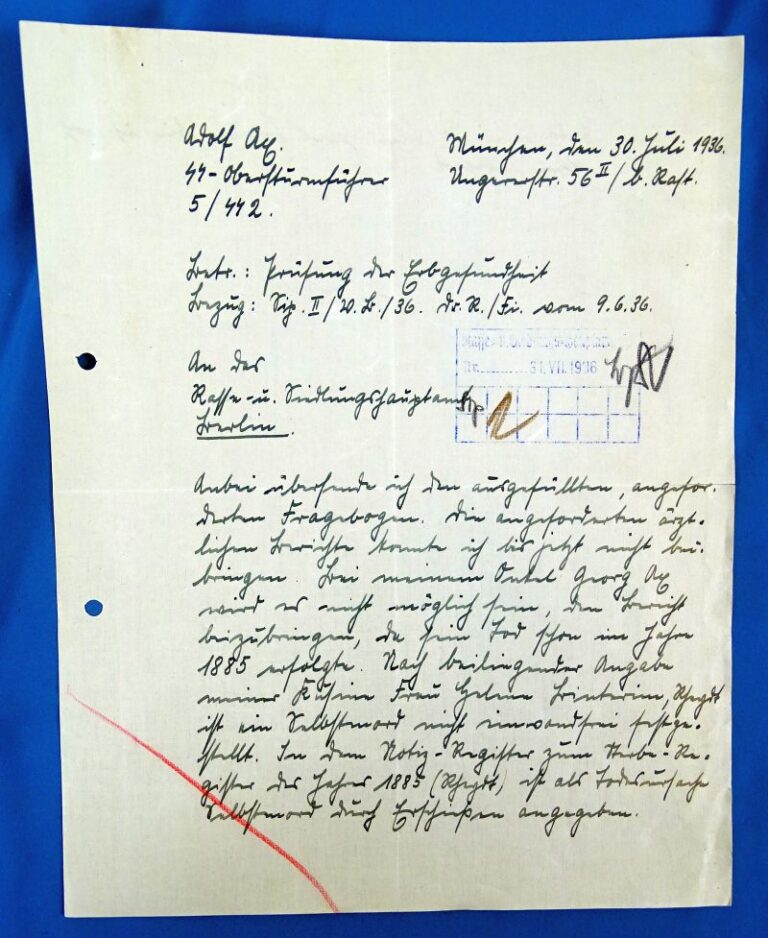 Adolf Ax.
München, den 30. Juli 1936.
SS-Obersturmführer
Ungererstr. 56 II/ b. Rast.
5/SS 2.
Betr.: Prüfung der Erbgesundheit
Bezug: Sip. II/W.B./36. Dr. R./Fi. vom 9.6.36.
Rasse- u. Siedlungshauptamt
31. VII. 1936
An das
Rasse- u. Siedlungshauptamt
Berlin.
Anbei übersende ich den ausgefüllten, angefor-
derten Fragebogen. Die angeforderten ärzt-
lichen Berichte konnte ich bis jetzt nicht bei-
bringen. Bei meinem Onkel Georg Ax
wird es nicht möglich sein, den Bericht
beizubringen, da sein Tod schon im Jahre
1885 erfolgte. Nach beiliegender Angabe
meiner Kusine Frau Helene Brinterim, Rheydt
ist ein Selbstmord nicht einwandfrei festge-
stellt. In dem Notiz-Register zum Sterbe-Re-
gister des Jahres 1885 (Rheydt) ist als Todesursache
Selbstmord durch Erschießen angegeben.